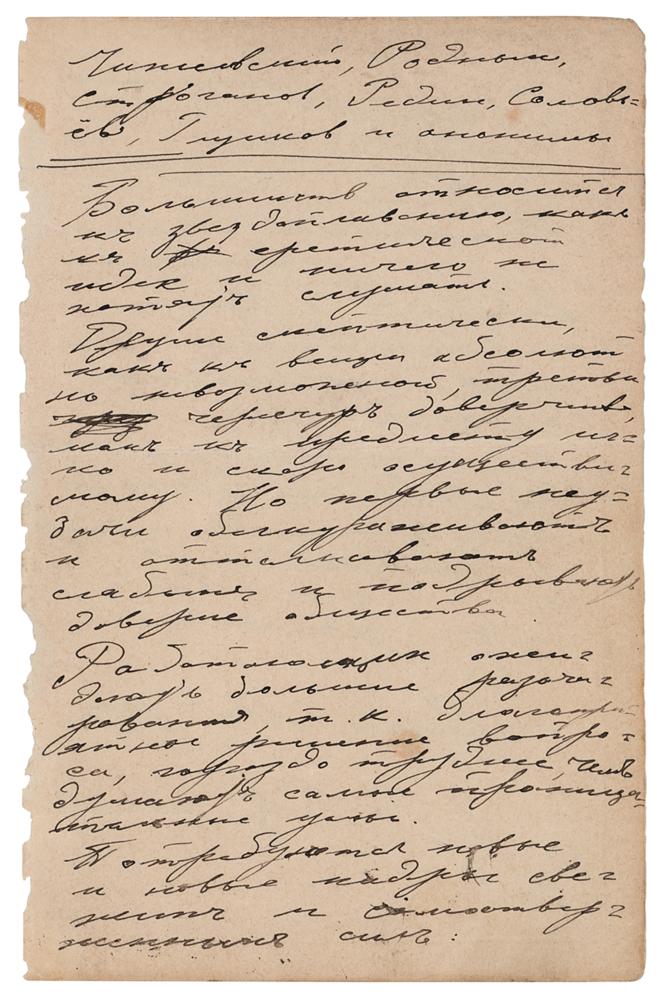 Чижевский, Родных,
Строганов, Редин, Соловь=
ёв, Глушков и анонимы
Большинств относится
къ звездоплаванию, какъ
къ еретической
идее и ничего не
хотятъ слушать.
Другие скептически,
какъ къ вещи абсолют
но невозможной, третьи
черезчуръ доверчиво,
какъ къ предмету лег=
ко и скоро осуществи=
мому. Но первые неу=
дачи обескураживаютъ
и отталкиваютъ
слабыхъ и подрываютъ
доверие общества.
Работающихъ ожи=
даютъ большие разоча=
рования, т.к. благопри
ятное решение вопро=
са, гораздо труднее, чемъ
думаютъ самые проница=
тельные умы.
Потребуются новые
и новые кадры све=
жихъ и самоотвер=
женныхъ силъ: